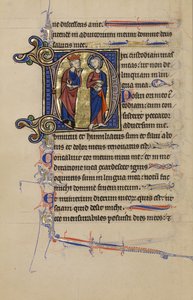 ne discesseris a me.
Intende in adiutorium meum domine deus
salutis mee.
custodiam uias
meas: ut non de
linquam in lin
gua mea.
Posui ori meo
custodiam: cum con
sisteret peccator
aduersum me.
et humiliatus sum et silui
a bonis: et dolor meus renouatus est.
Concaluit cor meum intra me: et in me
ditatione mea exardescet ignis.
Locutus sum in lingua mea: notum fac
michi domine finem meum.
Et numerum dierum meorum: quis est: ut
sciam quid desit michi.
Ecce mensurabiles posuisti dies meos: et